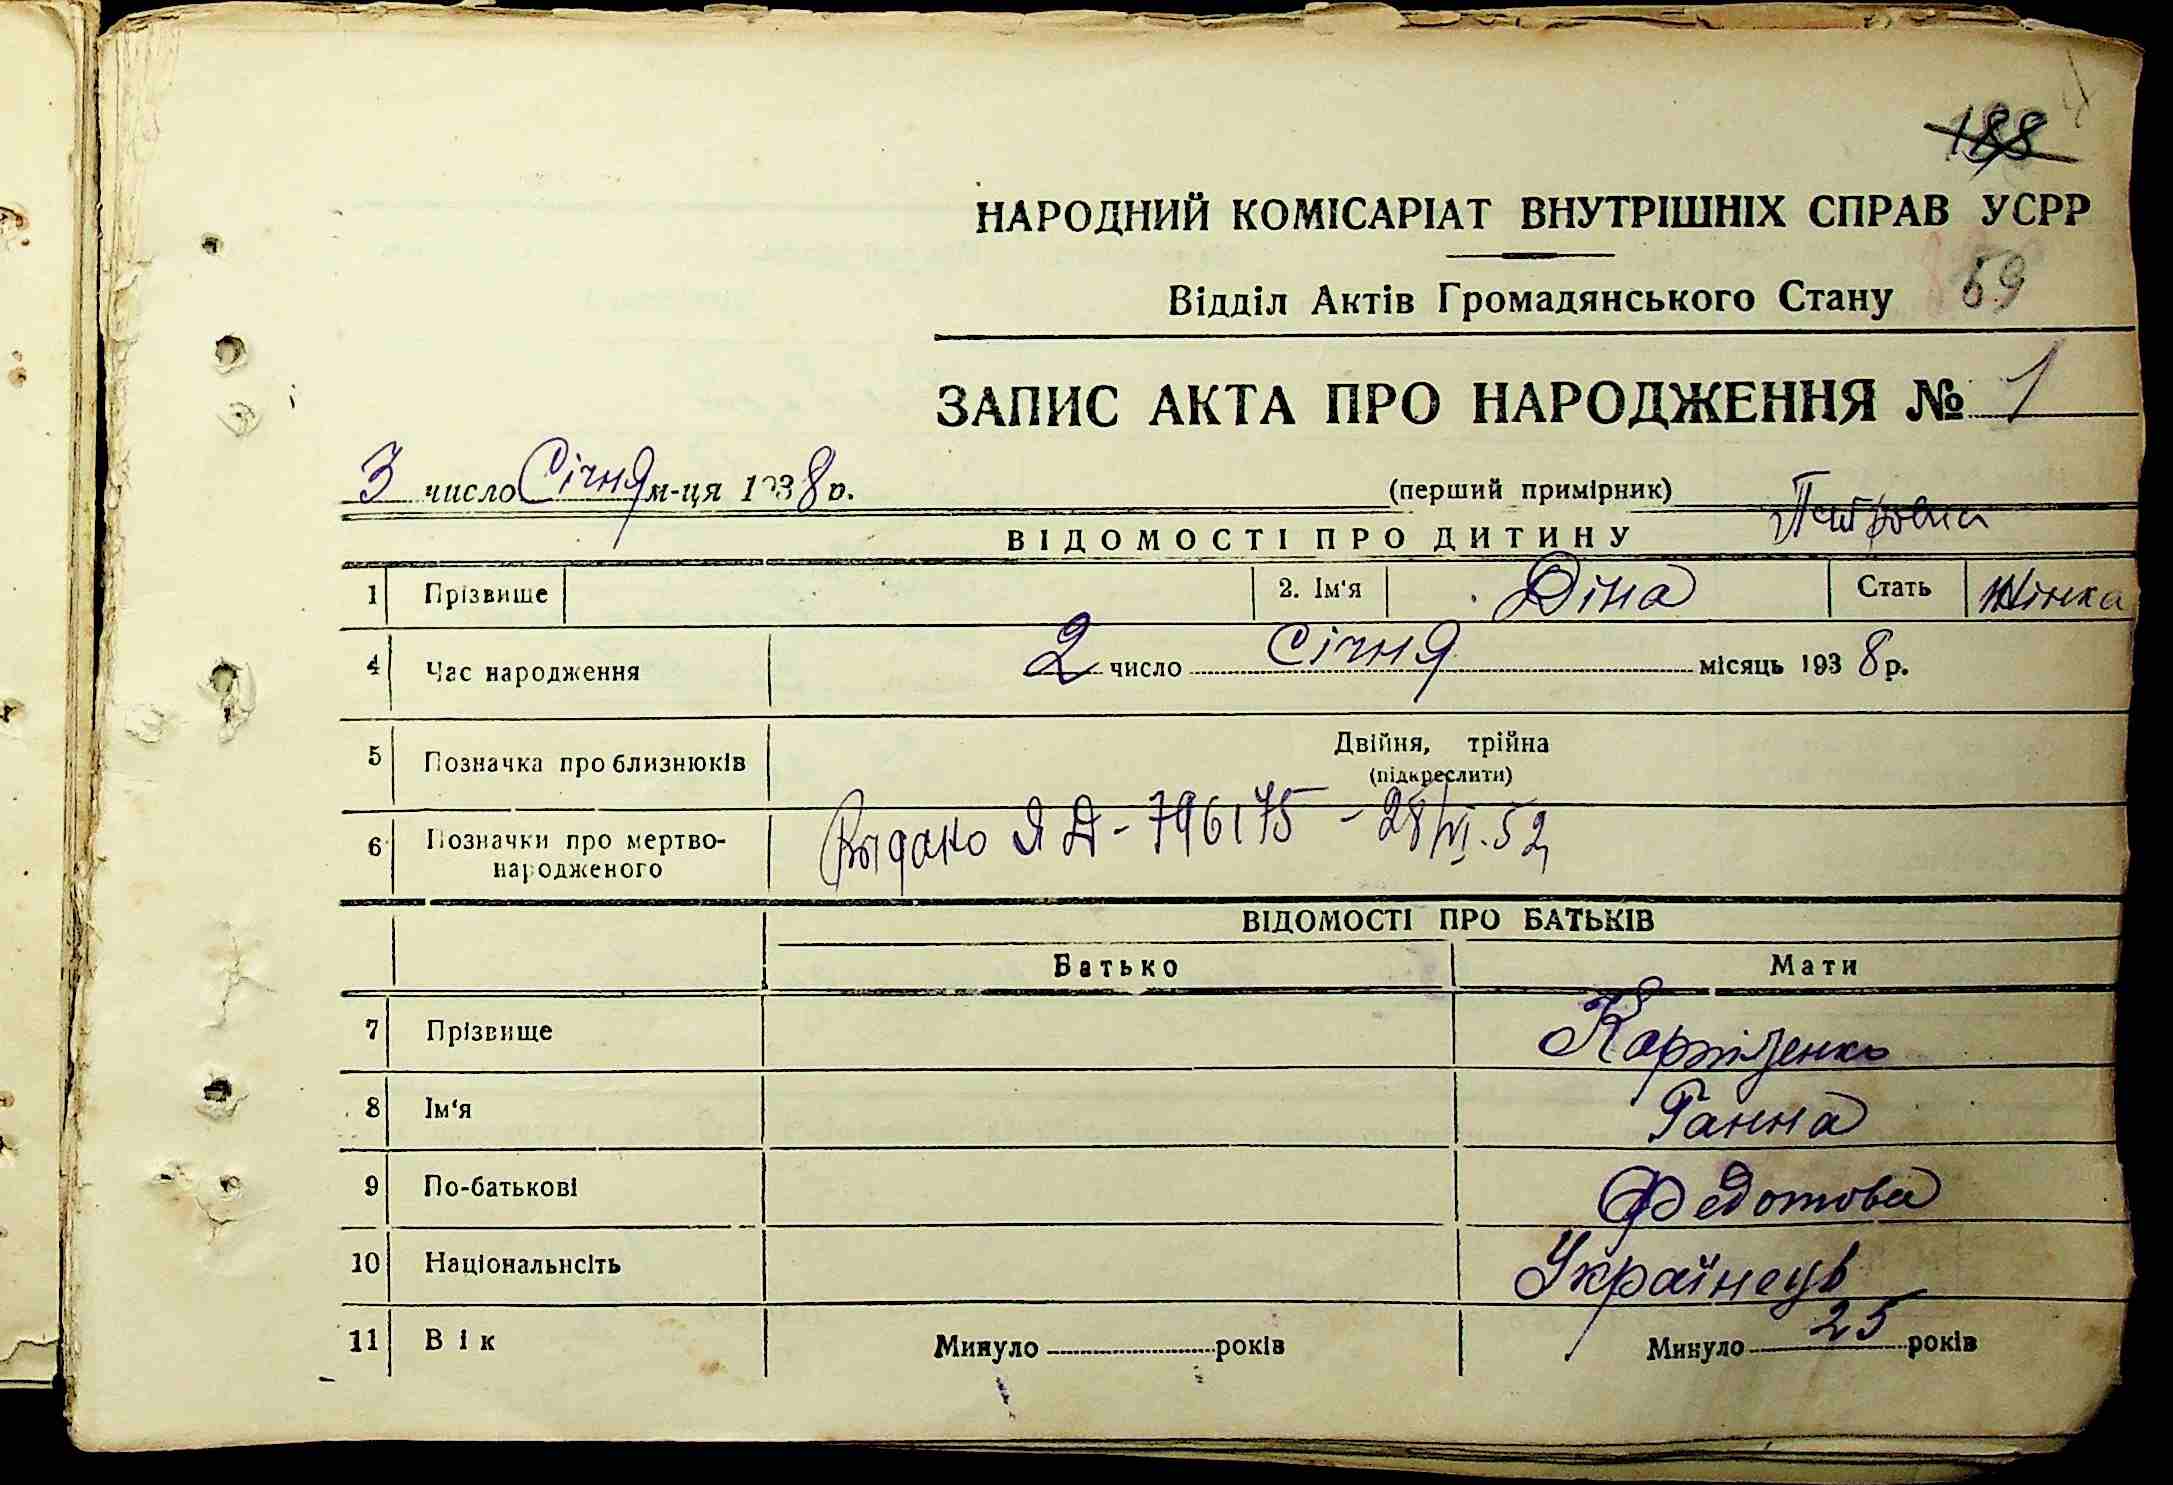 188
НАРОДНИЙ КОМІСАРІАТ ВНУТРІШНІХ СПРАВ УСРР
Відділ Актів Громадянського Стану 59
ЗАПИС АКТА ПРО НАРОДЖЕННЯ № 1
3 число Січня м-ця 1938 р.
(перший примірник)
Петровна
ВІДОМОСТІ ПРО ДИТИНУ
1 Прізвище 2. Ім'я Діна Стать Жінка
4 Час народження 2 число Січня місяць 1938 р.
5 Позначка про близнюків Двійня, трійна
(підкреслити)
6 Позначки про мертво-
народженого
Выдано Я Д - 796175 - 28/VI.52
ВІДОМОСТІ ПРО БАТЬКІВ
Батько Мати
7 Прізвище
8 Ім'я Ганна
9 По-батькові Федотова
10 Національнсіть Українець
11 Вік Минуло років Минуло 25 років